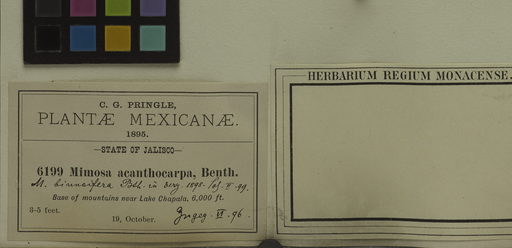 C. G. PRINGLE,
PLANTÆ MEXICANÆ.
1895.
—STATE OF JALISCO—
6199 Mimosa acanthocarpa, Benth.
M. biuncifera
Base of mountains near Lake Chapala, 6,000 ft.
3-5 feet.
19, October.
HERBARIUM REGIUM MONACENSE.